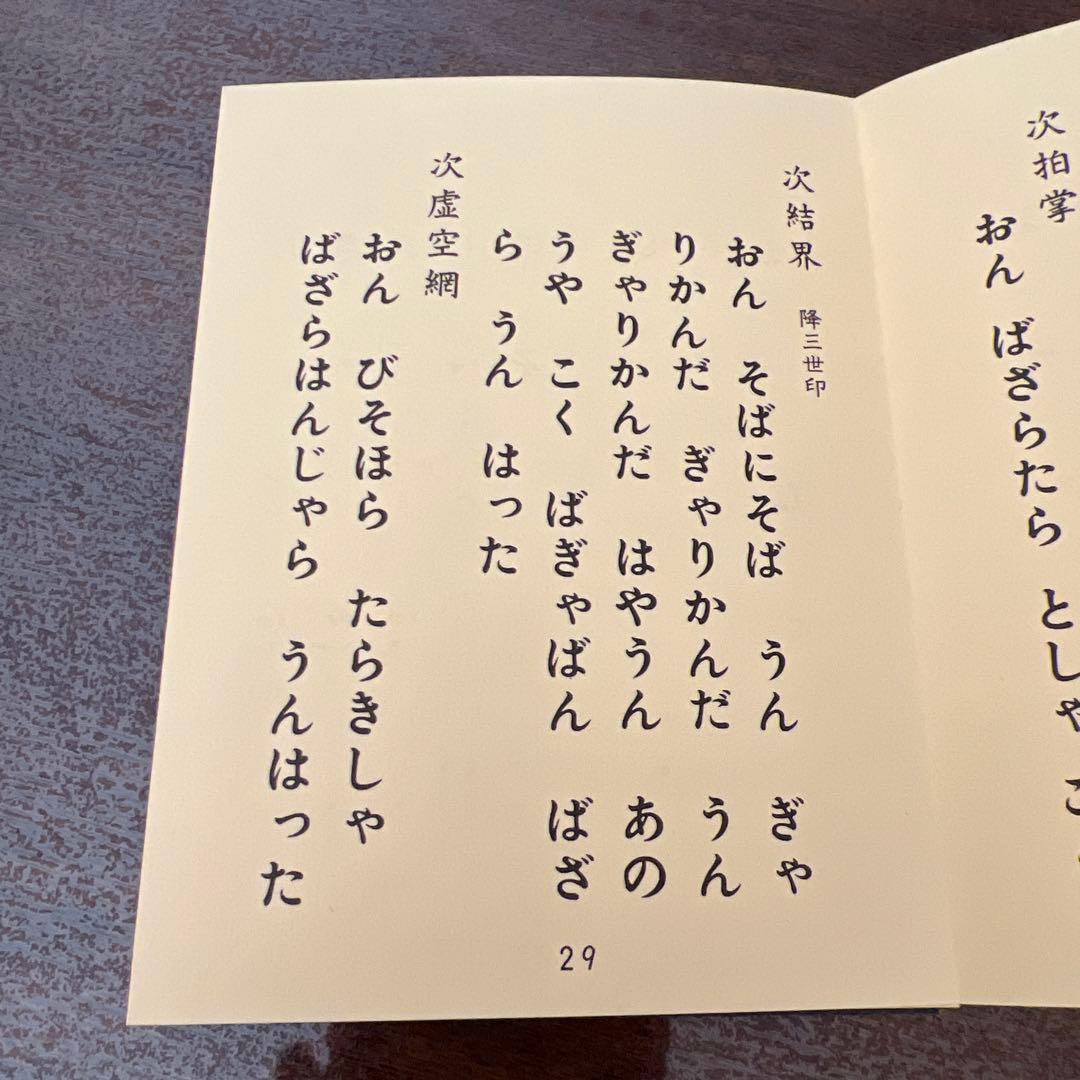 次拍掌
おん ばざらたら としゃ
次結界 降三世印
おん そばにそば うん ぎゃ
りかんだ ぎゃりかんだ うん
ぎゃりかんだ はやうん あの
うや こく ばぎゃばん ばざ
ら うん はった
次虚空網
おん びそほら たらきしゃ
ばざらはんじゃら うんはった
29